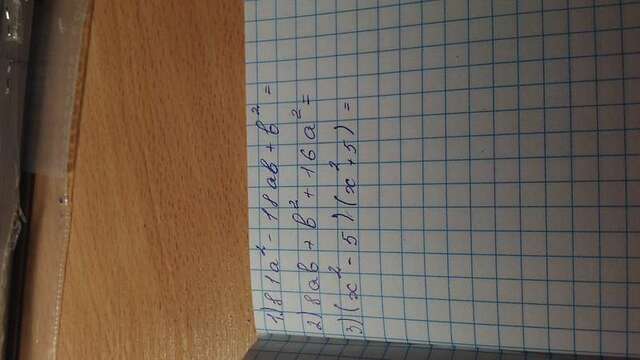 1) 81a² - 18ab + b² =
2) 8ab + b² + 16a² =
3) (x² - 5)(x² + 5) =